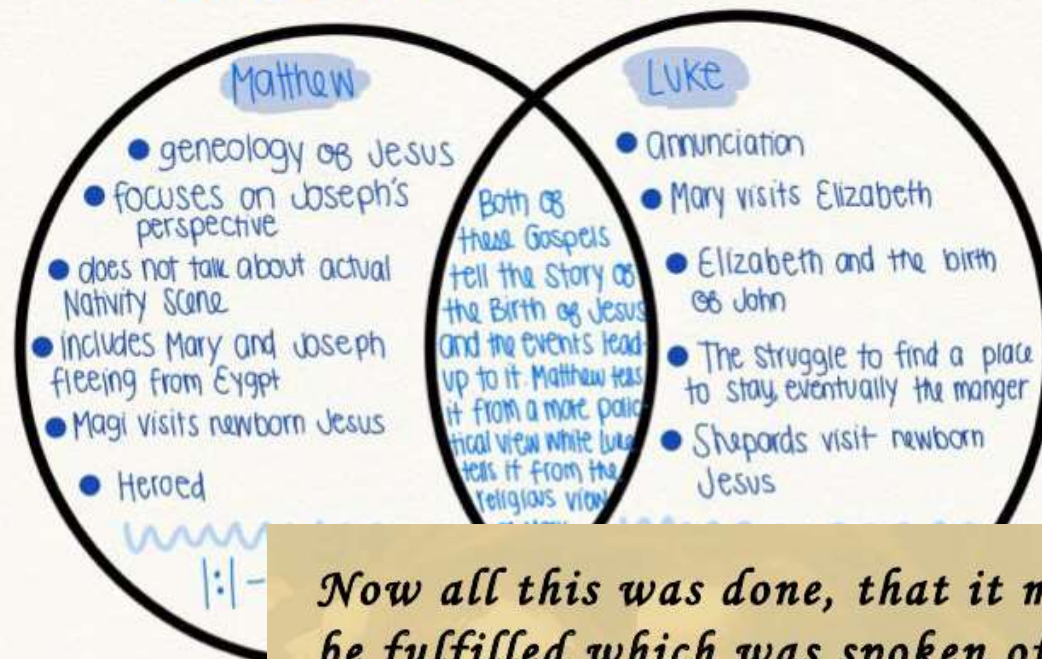 Matthew
geneology of Jesus
focuses on Joseph's
perspective
does not talk about actual
Nativity scene
includes Mary and Joseph
fleeing from Eygpt
Magi visits newborn Jesus
Heroed
1:1-
Both of
these Gospels
tell the story of
the Birth of Jesus
and the events lead-
up to it. Matthew tells
it from a more polic-
tical view while Luke
tells it from the
religious view
Luke
annunciation
Mary visits Elizabeth
Elizabeth and the birth
of John
The struggle to find a place
to stay, eventually the manger
Shepards visit newborn
Jesus
Now all this was done, that it m
be fulfilled which was spoken of